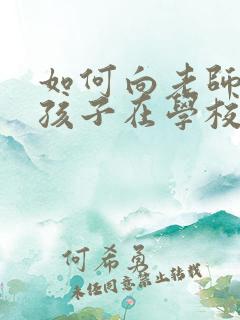 如何向老師
孩子在學校
何希勇
未經同意禁止轉載